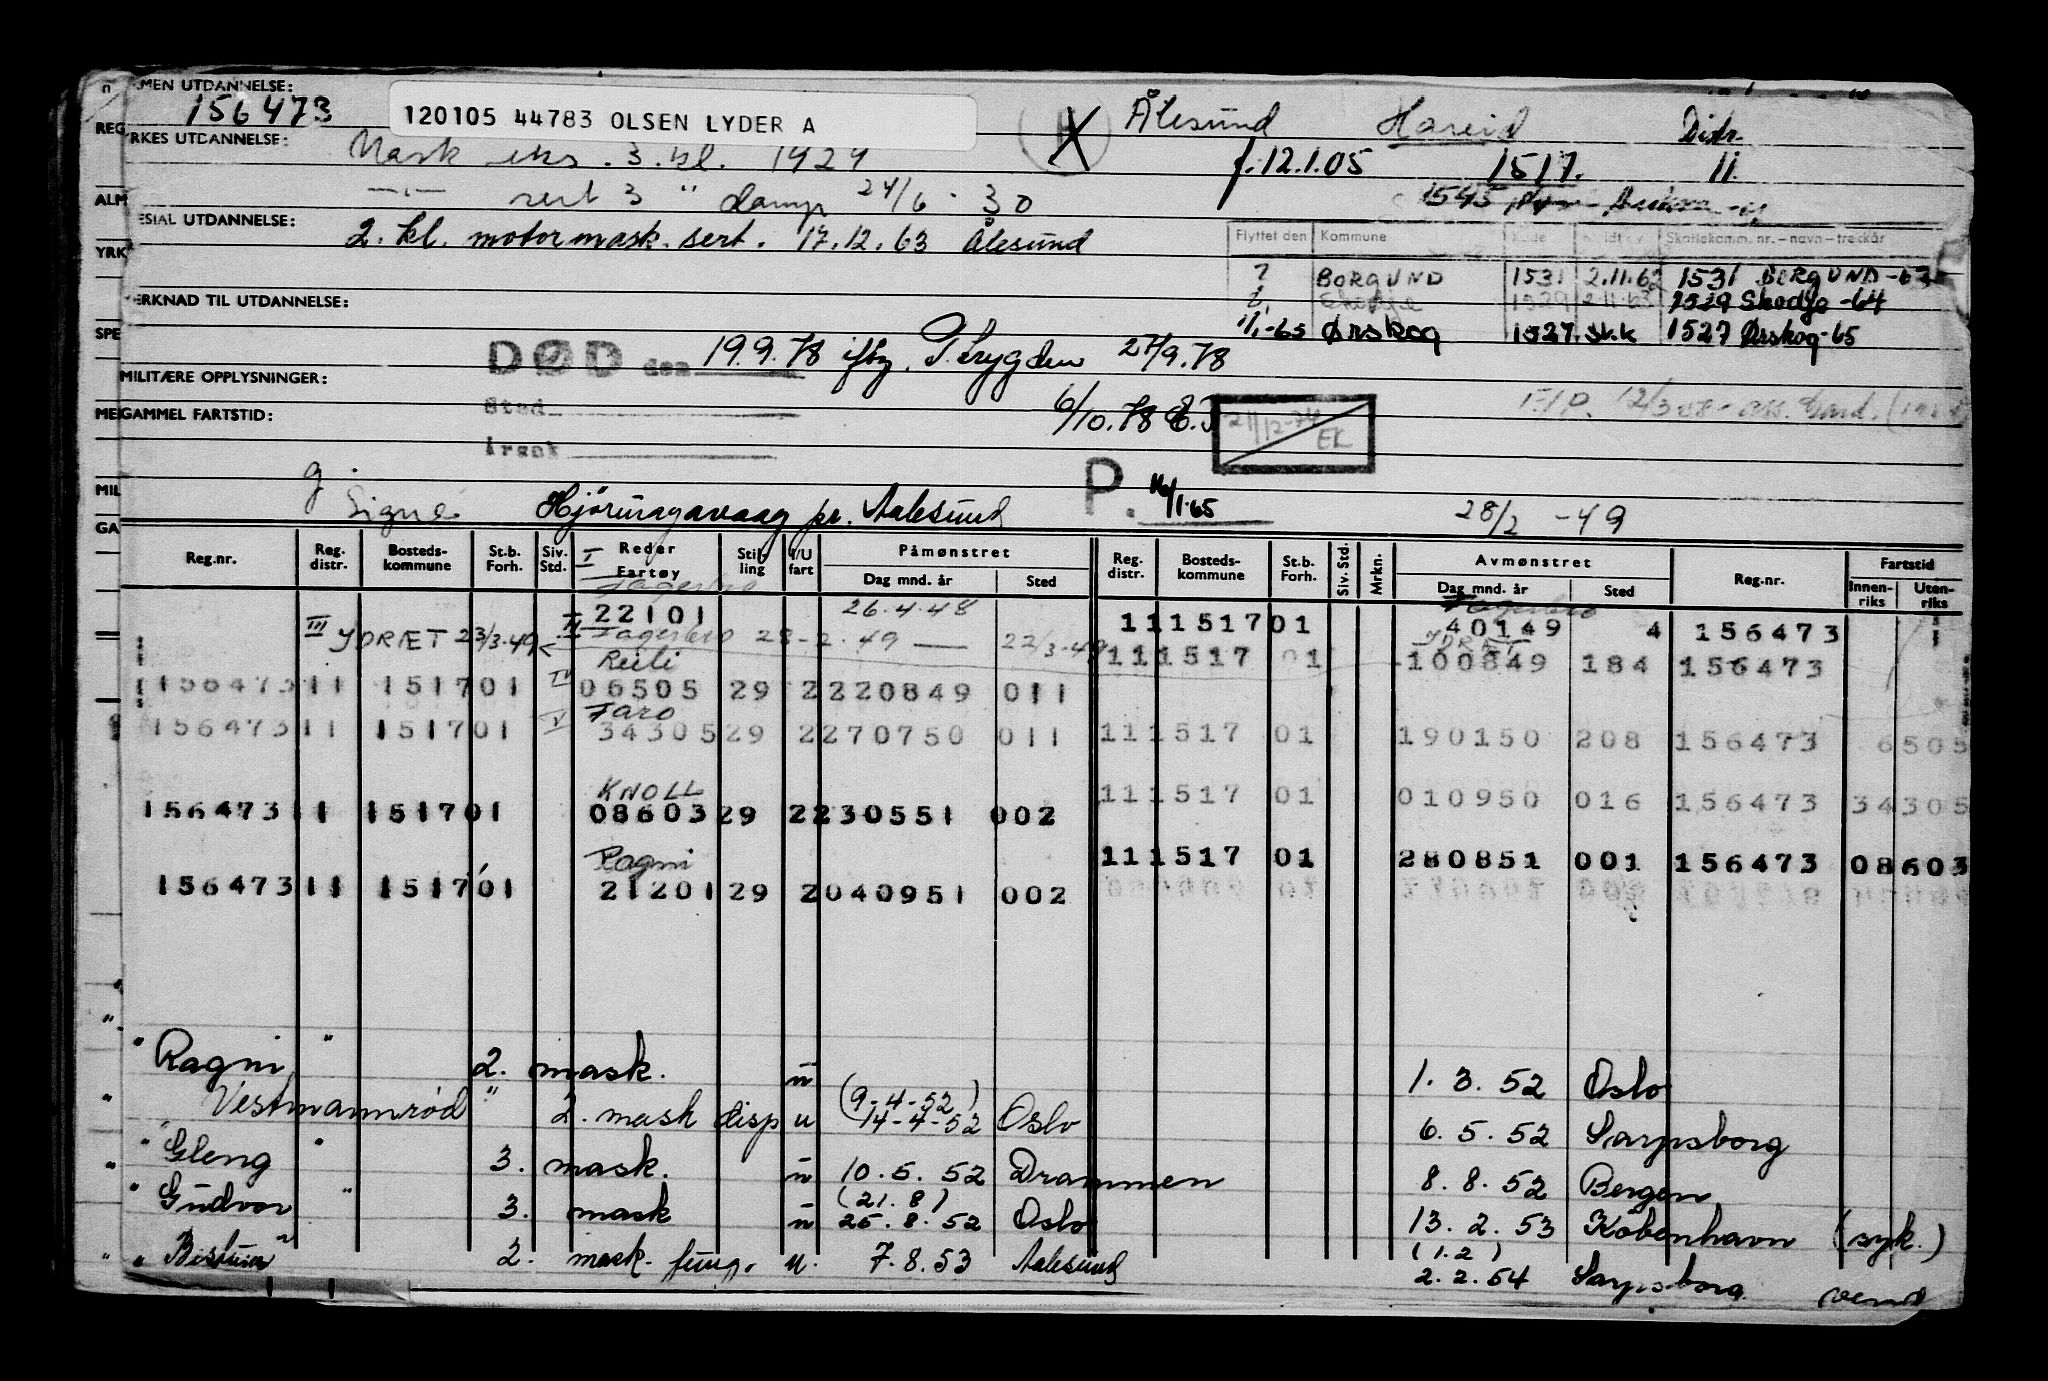 MEN UTDANNELSE:
156473
120105 44783 OLSEN LYDER A
Ålesund Hareid Distr.
REG
RKES UTDANNELSE:
Mask eks. 3. kl. 1929
f. 12.1.05 1517. 11.
ALM
sert 3 " damp 24/6 - 30
1545
ESIAL UTDANNELSE:
2. kl. motormask. sert. 17.12.63 Ålesund
Flyttet den Kommune Kode Meldt av Skattekomm. nr. – navn – trekkår
YRK
? BORGUND 1531 2.11.62 1531 BORGUND -63
ERKNAD TIL UTDANNELSE:
Skodje 1529 2.11.63 1529 Skodje -64
SPE
1/1-65 Ørskog 1527 sk.k 1527 Ørskog -65
DØD den 19.9.78 iflg. Trygden 27/9.78
MILITÆRE OPPLYSNINGER:
Sted
6/10.78
ME GAMMEL FARTSTID:
21/12-74
EK
Årsak
P. 1/1.65
MIL
g.
Signe Hjörungavaag pr. Aalesund
28/2 -49
GA
Reg.nr. Reg. distr. Bosteds-kommune St.b. Forh. Siv. Std. Reder Fartøy Stilling I/U fart Påmønstret Dag mnd. år Sted Reg. distr. Bosteds-kommune St.b. Forh. Siv. Std. Mrkn. Avmønstret Dag mnd. år Sted Reg.nr. Fartstid Innen-riks Uten-riks
I Fagerbro
22101 26.4.48 11 1517 01 Fagerbro 40149 4 156473
III YDRÆT 23/3-49 II Fagerbro 28-2.49 — 22/3-49
YDRÆT
11 1517 01 100849 184 156473
Reeli
156473 11 1517 01 IV 06505 29 2 220849 011
Faro
156473 11 1517 01 V 34305 29 2 270750 011 11 1517 01 190150 208 156473 6505
KNOLL
11 1517 01 010950 016 156473 34305
156473 11 1517 01 08603 29 2 230551 002
Ragni
11 1517 01 280851 001 156473 08603
156473 11 1517 01 21201 29 2 040951 002
" Ragni " 2. mask. u 1. 3. 52 Oslo
Vestmannrød " 2. mask disp u (9-4-52) 14-4-52 Oslo 6. 5. 52 Sarpsborg
" Gleng " 3. mask. u 10. 5. 52 Drammen 8. 8. 52 Bergen
" Gudvor " 3. mask u (21. 8) 25. 8. 52 Oslo 13. 2. 53 København (syk.)
" Bestum " 2. mask. fung. u. 7. 8. 53 Aalesund (1.2) 2. 2. 54 Sarpsborg
vend